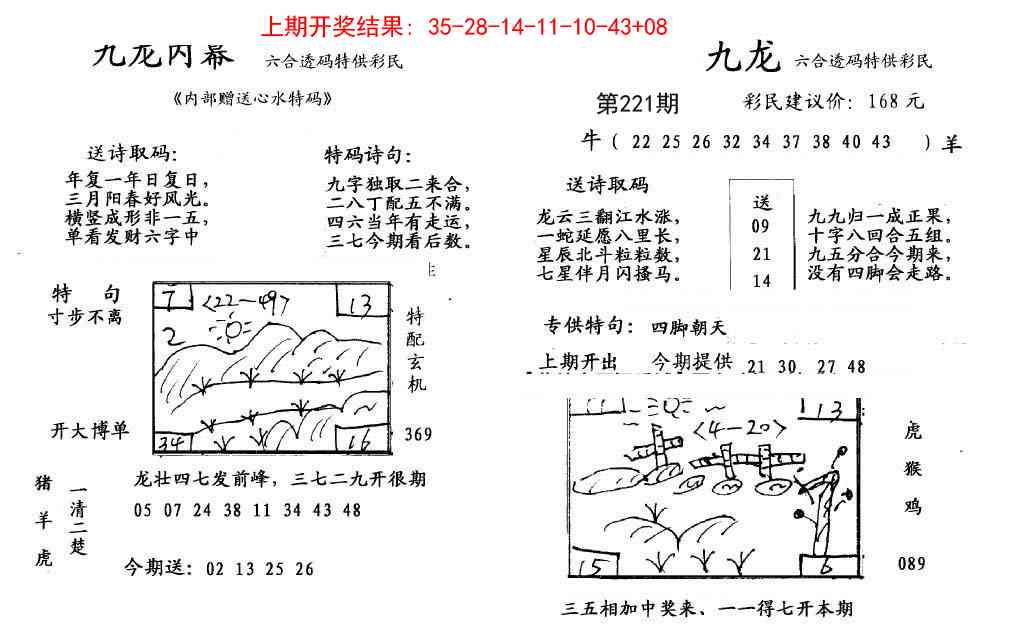 上期开奖结果: 35-28-14-11-10-43+08
九龙内幕 六合透码特供彩民
《内部赠送心水特码》
送诗取码:
年复一年日复日,
三月阳春好风光。
横竖成形非一五,
单看发财六字中
特码诗句:
九字独取二来合,
二八丁配五不满。
四六当年有走运,
三七今期看后数。
特 句
寸步不离
开大博单
7
<22-49>
13
2
34
16
特配玄机
369
猪羊虎
一清二楚
龙壮四七发前峰, 三七二九开很期
05 07 24 38 11 34 43 48
今期送: 02 13 25 26
九龙 六合透码特供彩民
第221期 彩民建议价: 168元
牛 ( 22 25 26 32 34 37 38 40 43 ) 羊
送诗取码
龙云三翻江水涨,
一蛇延愿八里长,
星辰北斗粒粒数,
七星伴月闪搔马。
送
09
21
14
九九归一成正果,
十字八回合五组。
九五分合今期来,
没有四脚会走路。
专供特句: 四脚朝天
上期开出 今期提供 21 30. 27 48
13
<4-20>
15
6
虎
猴
鸡
089
三五相加中奖来、一一得七开本期